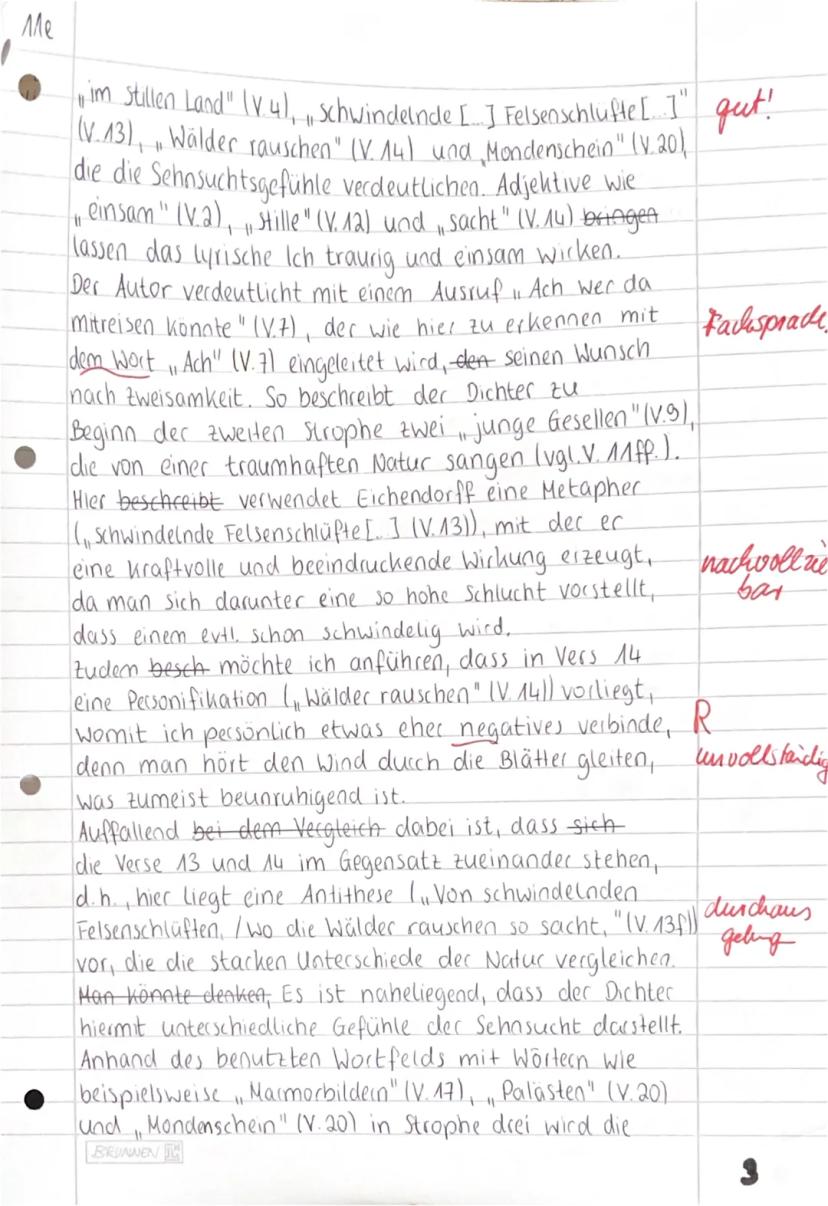 11e
„im stillen Land" (V.4), „schwindelnde [...] Felsenschlüfte [...]" gut!
(V.13), „Wälder rauschen" (V.14) und „Mondenschein" (V.20),
die die Sehnsuchtsgefühle verdeutlichen. Adjektive wie
„einsam" (V.2), „stille" (V.12) und „sacht" (V.14) bringen
lassen das lyrische Ich traurig und einsam wirken.
Der Autor verdeutlicht mit einem Ausruf „Ach wer da
mitreisen könnte" (V.7), der wie hier zu erkennen mit Fachsprache.
dem Wort „Ach" (V.7) eingeleitet wird, den seinen Wunsch
nach Zweisamkeit. So beschreibt der Dichter zu
Beginn der zweiten Strophe zwei „junge Gesellen" (V.9),
die von einer traumhaften Natur sangen (vgl. V. 11ff.).
Hier beschreibt verwendet Eichendorff eine Metapher
(„schwindelnde Felsenschlüfte [...] (V.13)), mit der er
eine kraftvolle und beeindruckende Wirkung erzeugt, nachvollzie
da man sich darunter eine so hohe Schlucht vorstellt, bar
dass einem evtl. schon schwindelig wird.
Zudem besch möchte ich anführen, dass in Vers 14
eine Personifikation („Wälder rauschen" (V.14)) vorliegt,
womit ich persönlich etwas eher negatives verbinde, R
denn man hört den Wind durch die Blätter gleiten, unvollständig
was zumeist beunruhigend ist.
Auffallend bei dem Vergleich dabei ist, dass sich
die Verse 13 und 14 im Gegensatz zueinander stehen,
d.h., hier liegt eine Antithese („Von schwindelnden durchaus
Felsenschlüften, / wo die Wälder rauschen so sacht," (V.13f)) gelung
vor, die die starken Unterschiede der Natur vergleichen.
Man könnte denken, Es ist naheliegend, dass der Dichter
hiermit unterschiedliche Gefühle der Sehnsucht darstellt.
Anhand des benutzten Wortfelds mit Wörtern wie
beispielsweise „Marmorbildern" (V.17), „Palästen" (V.20)
und „Mondenschein" (V.20) in Strophe drei wird die
BRUNNEN
3